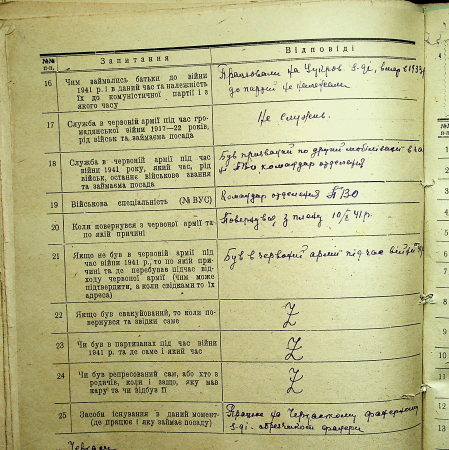 №№ п-п. Запитання Відповіді
16 Чим займались батьки до війни
1941 р. і в даний час та належність
їх до комуністичної партії і з
якого часу
Працювали на Цукров. з-ді,
до партії не належали
17 Служба в червоній армії під час гро-
мадянської війни 1917—22 років,
рід військ та займаєма посада
Не служив.
18 Служба в червоній армії під час
війни 1941 року, який час, рід
військ, останнє військове звання
та займаєма посада
Був призваний по другій мобілізації в
командир отделенія
19 Військова спеціальність (№ ВУС)
Командир отделенія ПВО
20 Коли повернувся з червоної армії та
по якій причині
Повернувся з плену 10/X 41р.
21 Якщо не був в червоній армії під
час війни 1941 р., то по якій при-
чині та де перебував підчас від-
ходу червоної армії (чим може
підтвердити, а коли свідками то їх
адреса)
Був в червоній армії під час війни
22 Якщо був евакуйований, то коли по-
вернувся та звідки саме
Z
23 Чи був в партизанах під час війни
1941 р. та де саме і який час
Z
24 Чи був репресований сам, або хто з
родичів, коли і защо, яку мав
кару та чи відбув її
Z
25 Засоби існування в даний момент-
(де працює і яку займає посаду)
Працює на Черкаському фанерному
з-ді. обрезчиком фанери
2
3
4
5
6
7
8
9
10
11
12
13